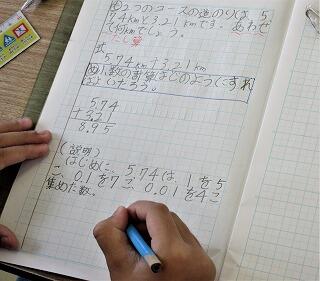 問 2つのコースの道のりは、5.
74kmと3.21kmです。あわせ
て何kmでしょう。
たし算
式
5.74km+3.21km
め 小数の計算はどのようにすれ
ばよいだろう。
5.74
+3.21
8.95
(説明)
はじめに、5.74は、1を5
こ、0.1を7こ、0.01を4こ
集めた数。